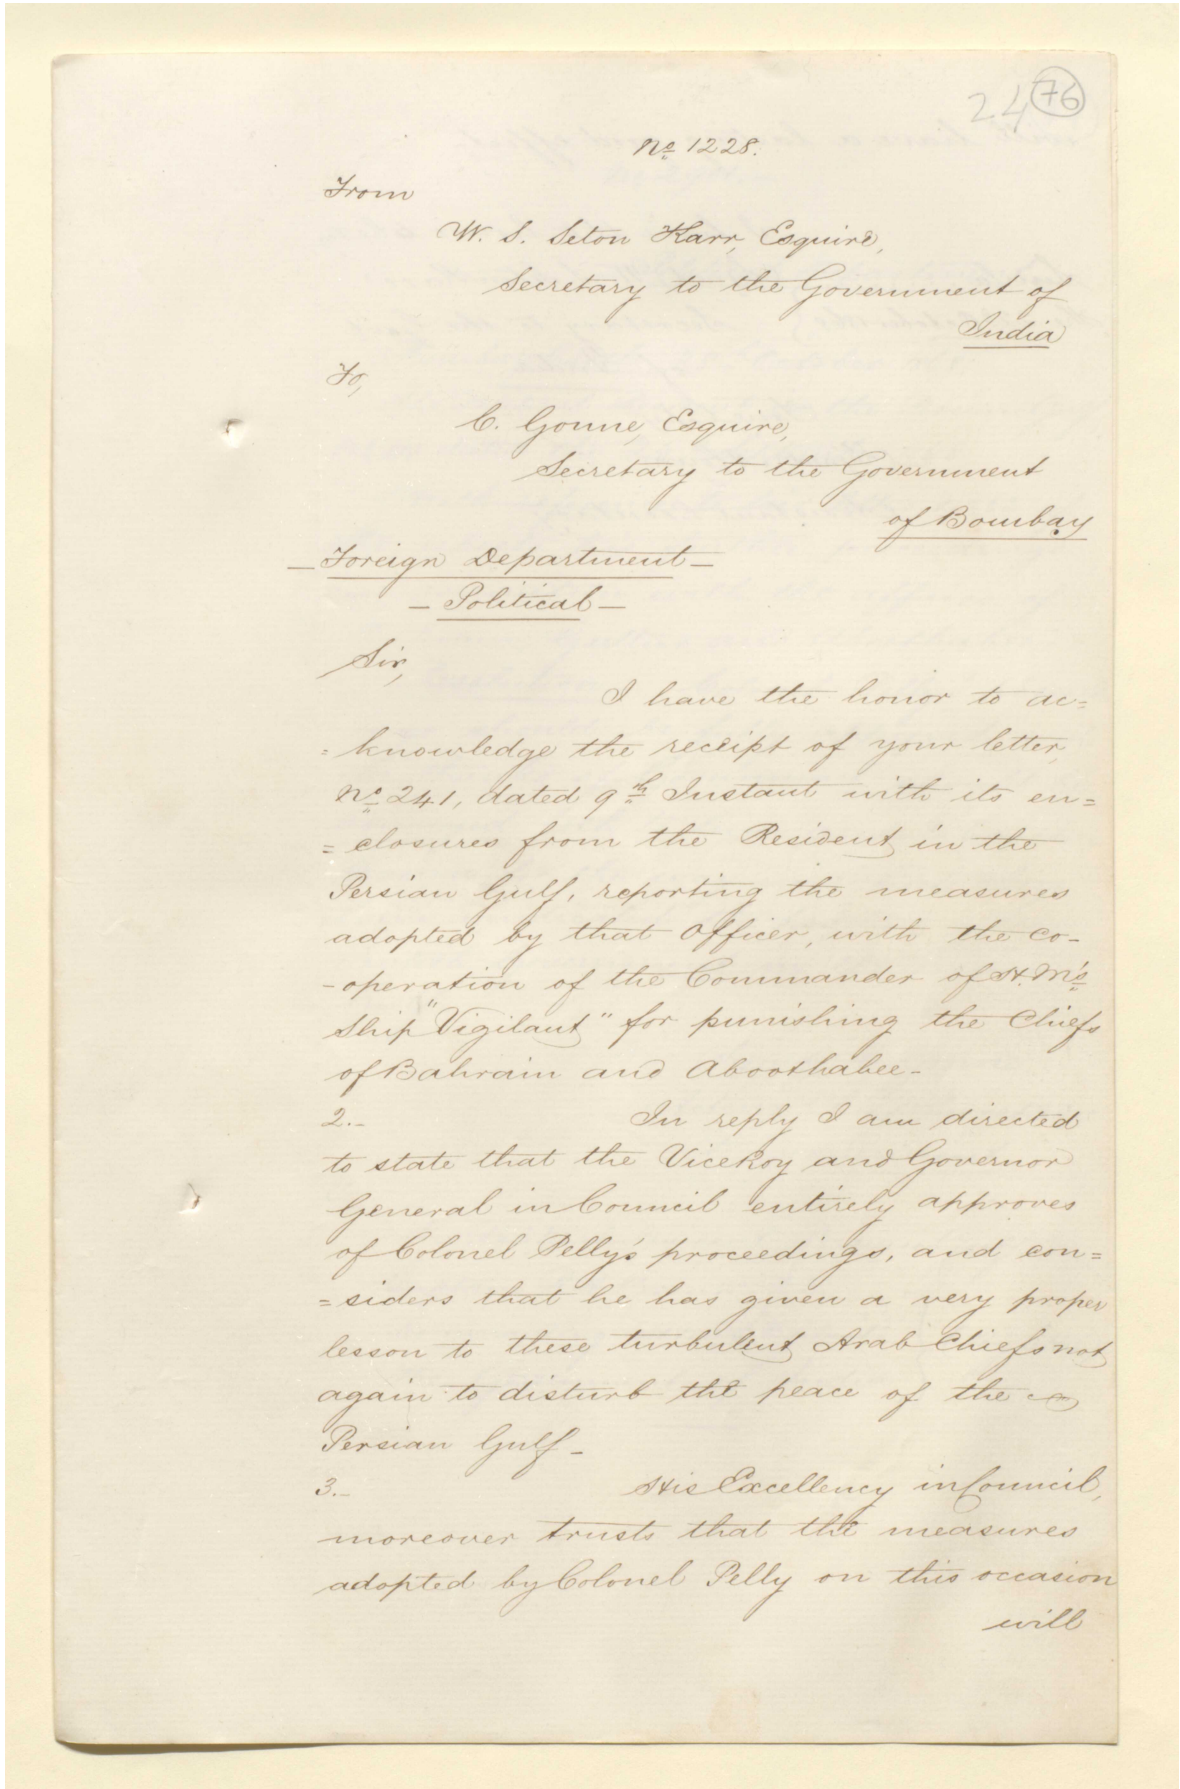 24 76
No 1228.
From
W. S. Seton Karr, Esquire,
Secretary to the Government of
India
To,
C. Gonne, Esquire,
Secretary to the Government
of Bombay
— Foreign Department —
— Political —
Sir,
I have the honor to ac=
= knowledge the receipt of your letter,
No 241, dated 9th Instant with its en=
= closures from the Resident in the
Persian Gulf, reporting the measures
adopted by that Officer, with the co-
- operation of the Commander of H. M's
Ship "Vigilant" for punishing the Chiefs
of Bahrain and Aboothabee -
2. - In reply I am directed
to state that the ViceRoy and Governor
General in Council entirely approves
of Colonel Pelly's proceedings, and con=
= siders that he has given a very proper
lesson to these turbulent Arab Chiefs not
again to disturb the peace of the
Persian Gulf -
3. - His Excellency in Council,
moreover trusts that the measures
adopted by Colonel Pelly on this occasion
will